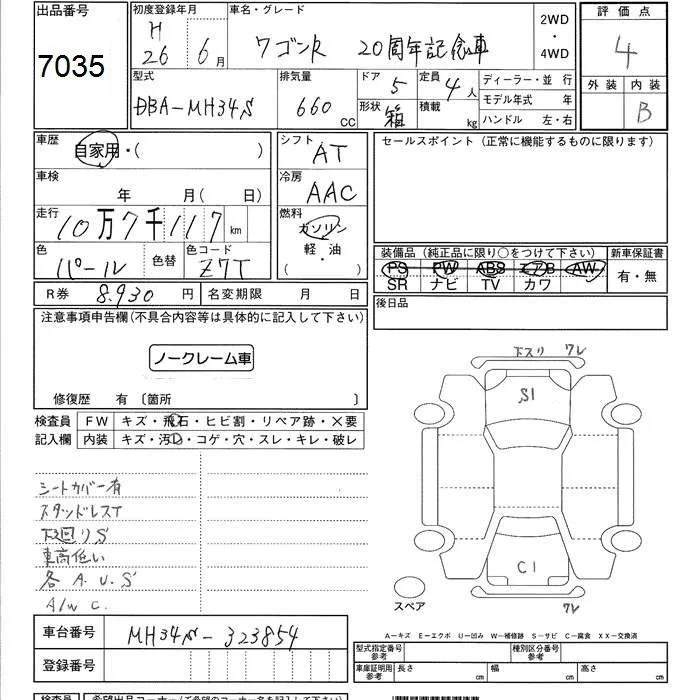 出品番号 初度登録年月 車名・グレード 2WD ・ 4WD 評価点
7035 H 26 年 6月 ワゴンR 20周年記念車 4
型式 排気量 ドア 定員 ディーラー・並 行 外装 内装
DBA-MH34S 660 CC 5 4人 モデル年式 年 B
形状 箱 積載 kg ハンドル 左・右
車歴 自家用・( ) シフト AT セールスポイント (正常に機能するものに限ります)
車検 年 月(日) 冷房 AAC
走行 10万7千117 km 燃料 ガソリン 軽・油 ( )
色 パール 色替 色コード Z7T
装備品 (純正品に限り○をつけて下さい) 新車保証書
PS PW ABS エアB AW 有・無
SR ナビ TV カワ
R券 8,930 円 名変期限 月 日 後日品
注意事項申告欄(不具合内容等は具体的に記入して下さい)
ノークレーム車
修復歴 有 〔箇所 〕
下スリ ワレ
S1
C1
ワレ
スペア
検査員 FW キズ・飛石・ヒビ割・リペア跡・×要
記入欄 内装 キズ・汚れ・コゲ・穴・スレ・キレ・破レ
シートカバー有
スタッドレスT
下廻りS
車高低い
各 A.U.S
A/W C.
車台番号 MH34S-323854
登録番号
A−キズ E−エクボ U−凹み W−補修跡 S−サビ C−腐食 XX−交換済
型式指定番号 参考 種別区分番号 参考
車庫証明用 参考 長さ cm 幅 cm 高さ cm
検査員 希望出品コーナー(ご希望のコーナー名をご記入下さい)